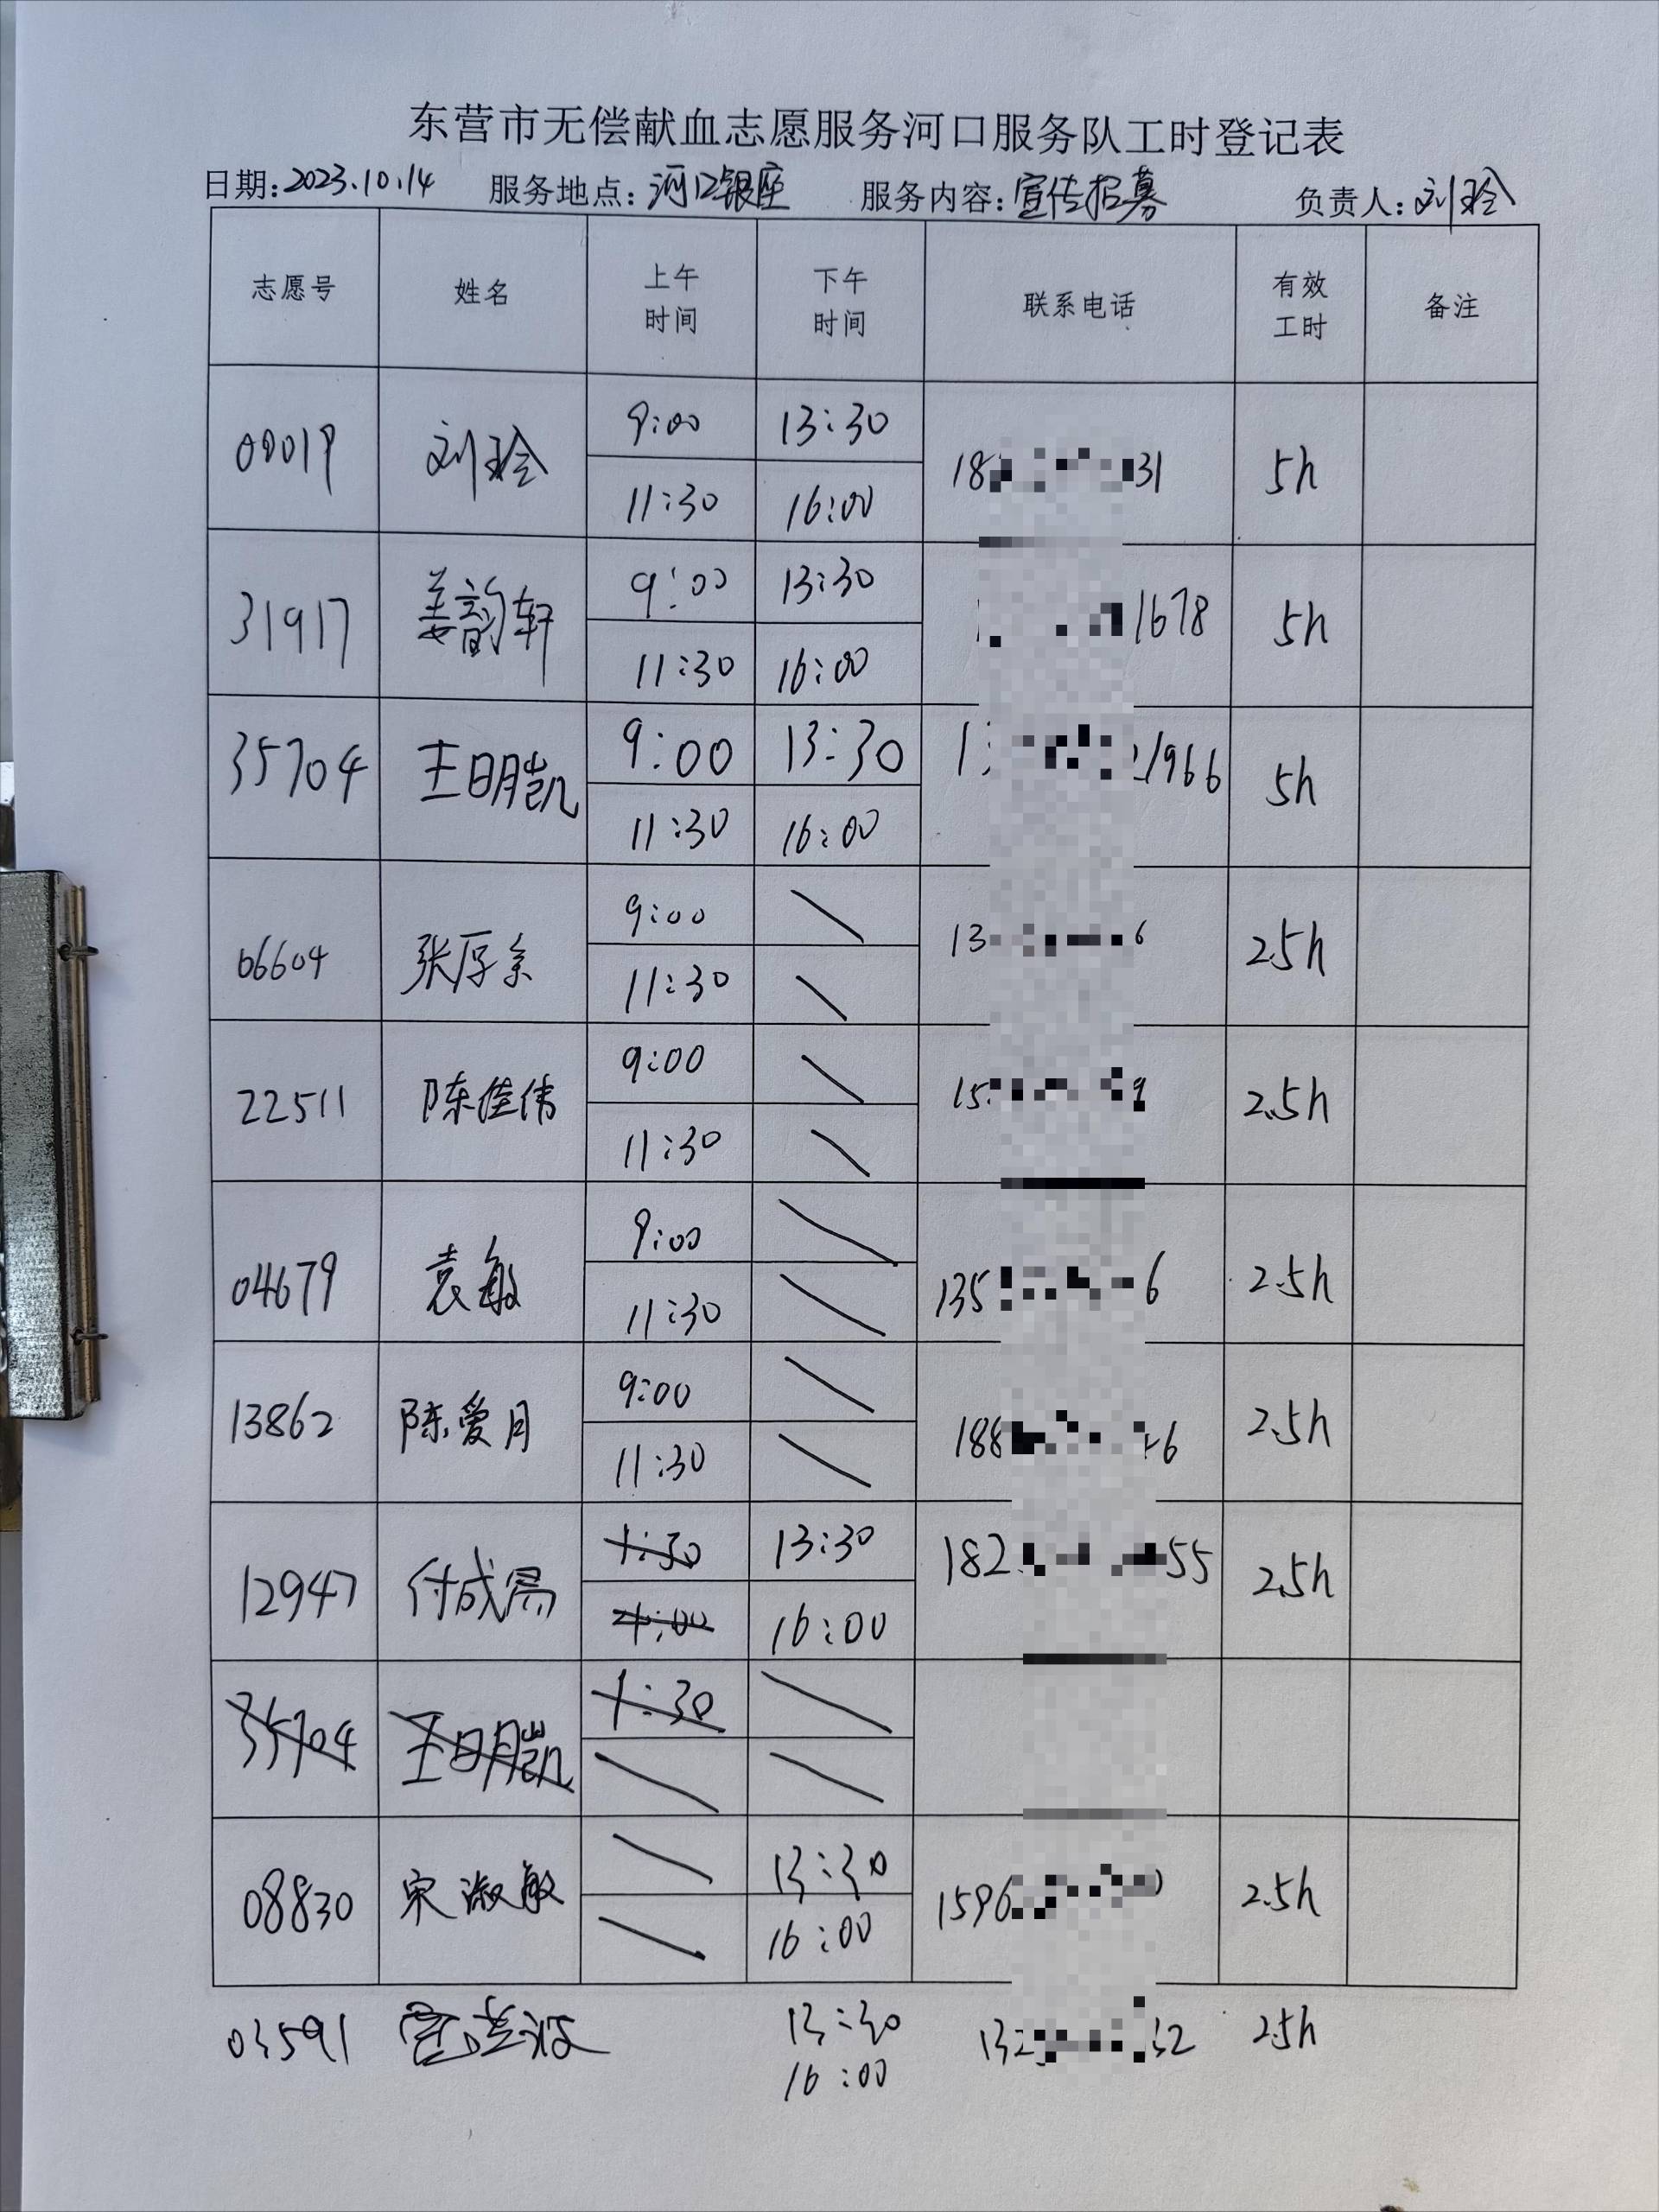 东营市无偿献血志愿服务河口服务队工时登记表
日期:2023.10.14 服务地点:河口银座 服务内容:宣传招募 负责人:刘玲
志愿号 姓名 上午时间 下午时间 联系电话 有效工时 备注
00019 刘玲 9:00 13:30 18 31 5h
11:30 16:00
31917 姜韵轩 9:00 13:30 1678 5h
11:30 16:00
35704 王明凯 9:00 13:30 1 1966 5h
11:30 16:00
06604 张厚 9:00 13 6 2.5h
11:30
22511 陈佳伟 9:00 15 9 2.5h
11:30
04679 袁敏 9:00 135 6 2.5h
11:30
13862 陈爱月 9:00 188 6 2.5h
11:30
12947 付成 1:30 13:30 182 55 2.5h
4:00 16:00
35704 王明凯 1:30
08830 宋淑敏 13:30 1596 2.5h
16:00
03591 13:30 132 32 2.5h
16:00